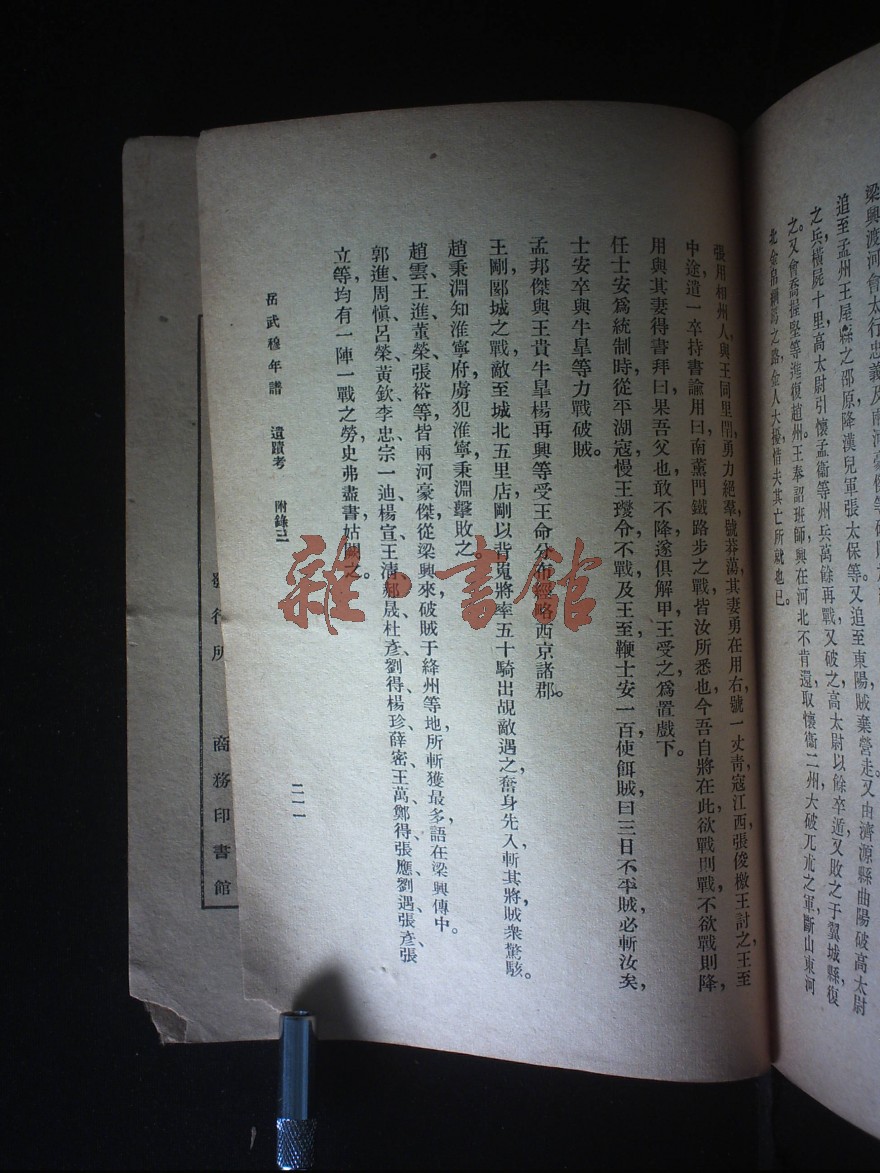 梁興渡河會太行忠義及兩河豪傑等
追至孟州王屋縣之邵原，降漢兒軍張太保等。又追至東陽，賊棄營走。又由濟源縣曲陽破高太尉
之兵，橫屍十里，高太尉引懷孟衞等州兵萬餘再戰，又破之，高太尉以餘卒遁，又敗之于翼城縣，復
之。又會喬握堅等進復趙州。王奉詔班師，興在河北不肯還，取懷衞二州，大破兀朮之軍，斷山東河
北金帛綱馬之路，金人大擾，惜夫其亡所就也已。
張用相州人，與王同里閈，勇力絕羣，號莽蕩，其妻勇在用右，號一丈靑，寇江西，張俊檄王討之，王至
中途，遣一卒持書諭用曰，南薰門鐵路步之戰，皆汝所悉也，今吾自將在此，欲戰則戰，不欲戰則降，
用與其妻得書拜曰，果吾父也，敢不降，遂俱解甲，王受之，爲置戲下。
任士安爲統制時，從平湖寇，慢王𤫉令不戰，及王至，鞭士安一百，使餌賊曰，三日不平賊，必斬汝矣，
士安卒與牛臯等力戰破賊。
孟邦傑與王貴牛臯楊再興等受王命分布經略西京諸郡。
王剛，郾城之戰，敵至城北五里店，剛以背嵬將率五十騎出覘敵，遇之，奮身先入，斬其將，賊衆驚駭。
趙秉淵知淮寧府，虜犯淮寧，秉淵擊敗之。
趙雲、王進、董榮、張裕等，皆兩河豪傑，從梁興來破賊于絳州等地，所斬獲最多，語在梁興傳中。
郭進、周愼、呂榮、黃欽、李忠、宗一迪、楊宣、王淸、郝晟、杜彥、劉得、楊珍、薛密、王萬、鄭得、張應、劉遇、張彥、張
立等，均有一陣一戰之勞，史弗盡書，姑闕之。
岳武穆年譜 遺蹟考 附錄三
二一一
發行所 商務印書館
雜·書館